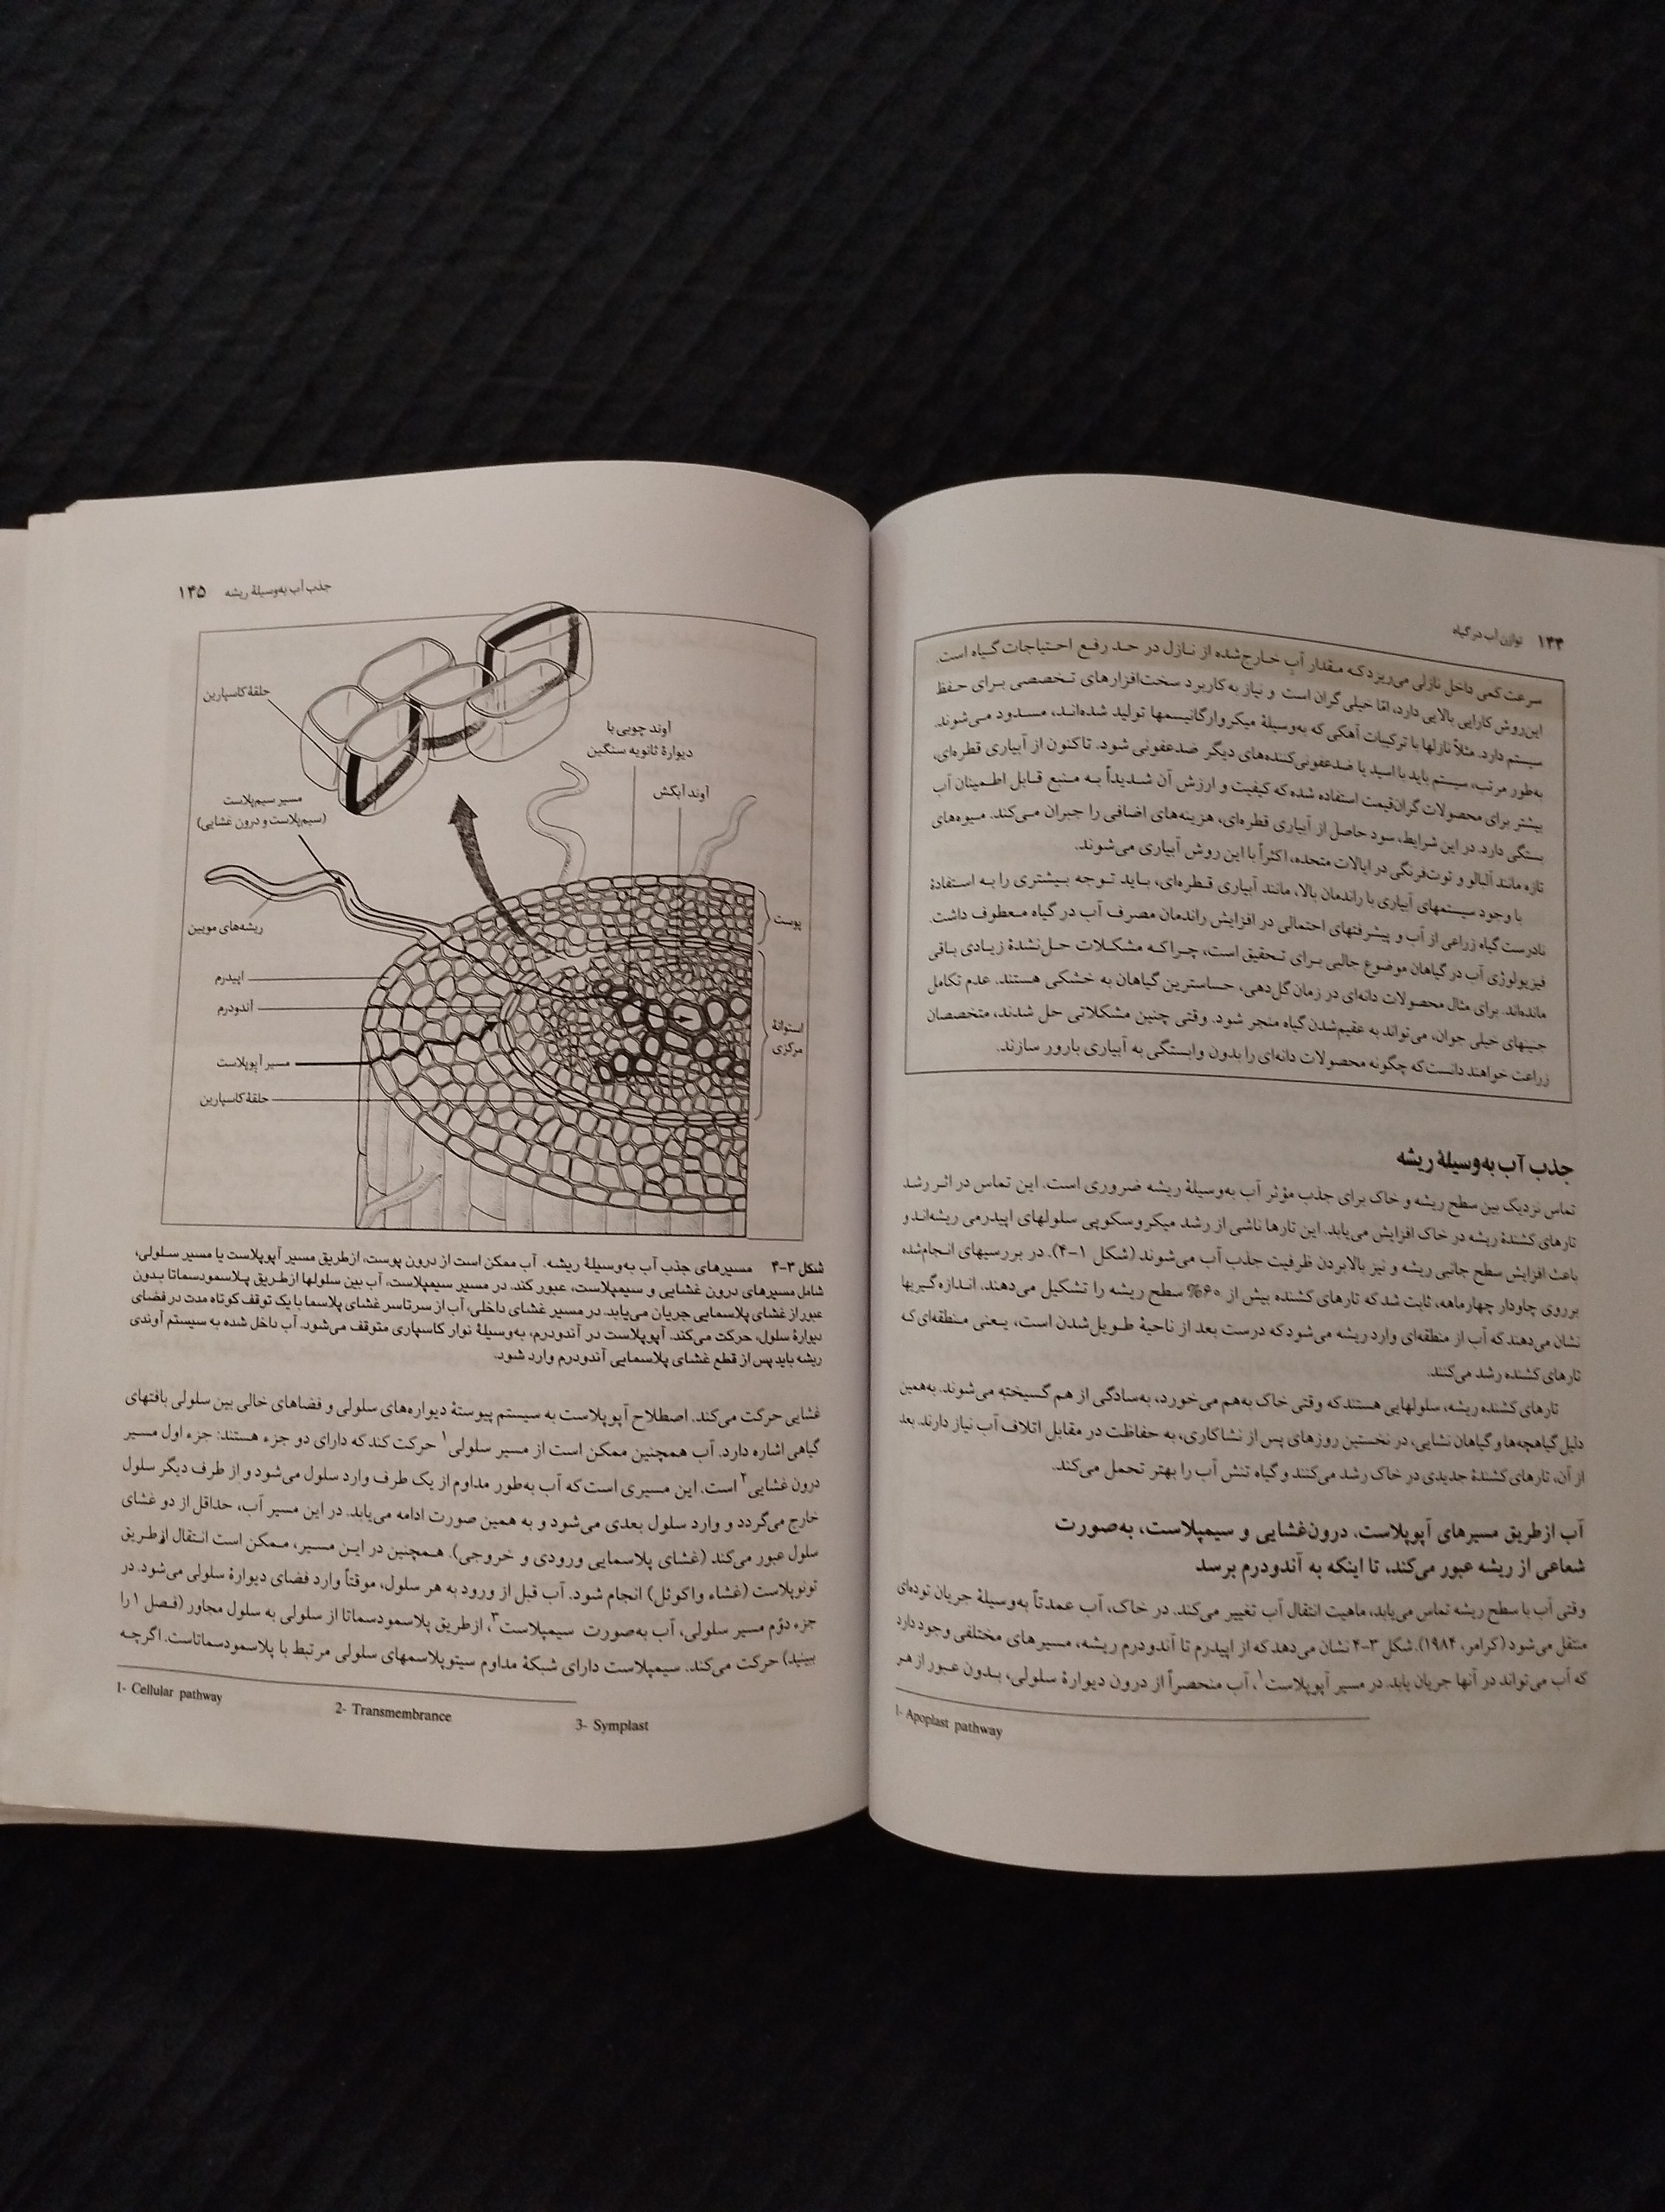 ۱۴۴ توازن آب در گیاه
سرعت کمی داخل نازلی می‌ریزد که مقدار آب خارج‌شده از نازل در حد رفع احتیاجات گیاه است.
این‌روش کارایی بالایی دارد، امّا خیلی گران است و نیاز به کاربرد سخت‌افزارهای تخصصی برای حفظ
سیستم دارد. مثلاً نازلها با ترکیبات آهکی که به‌وسیلهٔ میکروارگانیسمها تولید شده‌اند، مسدود می‌شوند.
به‌طور مرتب، سیستم باید با اسید یا ضدعفونی‌کننده‌های دیگر ضدعفونی شود. تاکنون از آبیاری قطره‌ای،
بیشتر برای محصولات گران‌قیمت استفاده شده که کیفیت و ارزش آن شدیداً به منبع قابل اطمینان آب
بستگی دارد. در این شرایط، سود حاصل از آبیاری قطره‌ای، هزینه‌های اضافی را جبران می‌کند. میوه‌های
تازه مانند آلبالو و توت‌فرنگی در ایالات متحده، اکثراً با این روش آبیاری می‌شوند.
با وجود سیستمهای آبیاری با راندمان بالا، مانند آبیاری قطره‌ای، باید توجه بیشتری را به استفادهٔ
نادرست گیاه زراعی از آب و پیشرفتهای احتمالی در افزایش راندمان مصرف آب در گیاه معطوف داشت.
فیزیولوژی آب در گیاهان موضوع جالبی برای تحقیق است، چراکه مشکلات حل‌نشدهٔ زیادی باقی
مانده‌اند. برای مثال محصولات دانه‌ای در زمان گل‌دهی، حساسترین گیاهان به خشکی هستند. عدم تکامل
جنینهای خیلی جوان، می‌تواند به عقیم‌شدن گیاه منجر شود. وقتی چنین مشکلاتی حل شدند، متخصصان
زراعت خواهند دانست که چگونه محصولات دانه‌ای را بدون وابستگی به آبیاری بارور سازند.
جذب آب به‌وسیلهٔ ریشه
تماس نزدیک بین سطح ریشه و خاک برای جذب مؤثر آب به‌وسیلهٔ ریشه ضروری است. این تماس در اثر رشد
تارهای کشندهٔ ریشه در خاک افزایش می‌یابد. این تارها ناشی از رشد میکروسکوپی سلولهای اپیدرمی ریشه‌اند و
باعث افزایش سطح جانبی ریشه و نیز بالابردن ظرفیت جذب آب می‌شوند (شکل ۱-۴). در بررسیهای انجام‌شده
برروی چاودار چهارماهه، ثابت شد که تارهای کشنده بیش از ۶۰% سطح ریشه را تشکیل می‌دهند. اندازه‌گیریها
نشان می‌دهند که آب از منطقه‌ای وارد ریشه می‌شود که درست بعد از ناحیهٔ طویل‌شدن است، یعنی منطقه‌ای که
تارهای کشنده رشد می‌کنند.
تارهای کشنده ریشه، سلولهایی هستند که وقتی خاک به‌هم می‌خورد، به‌سادگی از هم گسیخته می‌شوند. به‌همین
دلیل گیاهچه‌ها و گیاهان نشایی، در نخستین روزهای پس از نشاکاری، به حفاظت در مقابل اتلاف آب نیاز دارند. بعد
از آن، تارهای کشندهٔ جدیدی در خاک رشد می‌کنند و گیاه تنش آب را بهتر تحمل می‌کند.
آب ازطریق مسیرهای آپوپلاست، درون‌غشایی و سیمپلاست، به‌صورت
شعاعی از ریشه عبور می‌کند، تا اینکه به آندودرم برسد
وقتی آب با سطح ریشه تماس می‌یابد، ماهیت انتقال آب تغییر می‌کند. در خاک، آب عمدتاً به‌وسیلهٔ جریان توده‌ای
منتقل می‌شود (کرامر، ۱۹۸۴). شکل ۳-۴ نشان می‌دهد که از اپیدرم تا آندودرم ریشه، مسیرهای مختلفی وجود دارد
که آب می‌تواند در آنها جریان یابد. در مسیر آپوپلاست۱، آب منحصراً از درون دیوارهٔ سلولی، بدون عبور از هر
1- Apoplast pathway
جذب آب به‌وسیلهٔ ریشه ۱۴۵
حلقهٔ کاسپارین
آوند چوبی با
دیوارهٔ ثانویه سنگین
آوند آبکش
مسیر سیمپلاست
(سیمپلاست و درون غشایی)
ریشه‌های مویین
پوست
اپیدرم
آندودرم
استوانهٔ
مرکزی
مسیر آپوپلاست
حلقهٔ کاسپارین
شکل ۳-۴ مسیرهای جذب آب به‌وسیلهٔ ریشه. آب ممکن است از درون پوست، ازطریق مسیر آپوپلاست یا مسیر سلولی،
شامل مسیرهای درون غشایی و سیمپلاست، عبور کند. در مسیر سیمپلاست، آب بین سلولها ازطریق پلاسمودسماتا بدون
عبور از غشای پلاسمایی جریان می‌یابد. در مسیر غشای داخلی، آب از سرتاسر غشای پلاسما با یک توقف کوتاه مدت در فضای
دیوارهٔ سلول، حرکت می‌کند. آپوپلاست در آندودرم، به‌وسیلهٔ نوار کاسپاری متوقف می‌شود. آب داخل شده به سیستم آوندی
ریشه باید پس از قطع غشای پلاسمایی آندودرم وارد شود.
غشایی حرکت می‌کند. اصطلاح آپوپلاست به سیستم پیوستهٔ دیواره‌های سلولی و فضاهای خالی بین سلولی بافتهای
گیاهی اشاره دارد. آب همچنین ممکن است از مسیر سلولی۱ حرکت کند که دارای دو جزء هستند: جزء اول مسیر
درون غشایی۲ است. این مسیری است که آب به‌طور مداوم از یک طرف وارد سلول می‌شود و از طرف دیگر سلول
خارج می‌گردد و وارد سلول بعدی می‌شود و به همین صورت ادامه می‌یابد. در این مسیر آب، حداقل از دو غشای
سلول عبور می‌کند (غشای پلاسمایی ورودی و خروجی). همچنین در این مسیر، ممکن است انتقال ازطریق
تونوپلاست (غشاء واکوئل) انجام شود. آب قبل از ورود به هر سلول، موقتاً وارد فضای دیوارهٔ سلولی می‌شود. در
جزء دوّم مسیر سلولی، آب به‌صورت سیمپلاست۳، ازطریق پلاسمودسماتا از سلولی به سلول مجاور (فصل ۱ را
ببینید) حرکت می‌کند. سیمپلاست دارای شبکهٔ مداوم سیتوپلاسمهای سلولی مرتبط با پلاسمودسماتاست. اگرچه
1- Cellular pathway 2- Transmembrance 3- Symplast